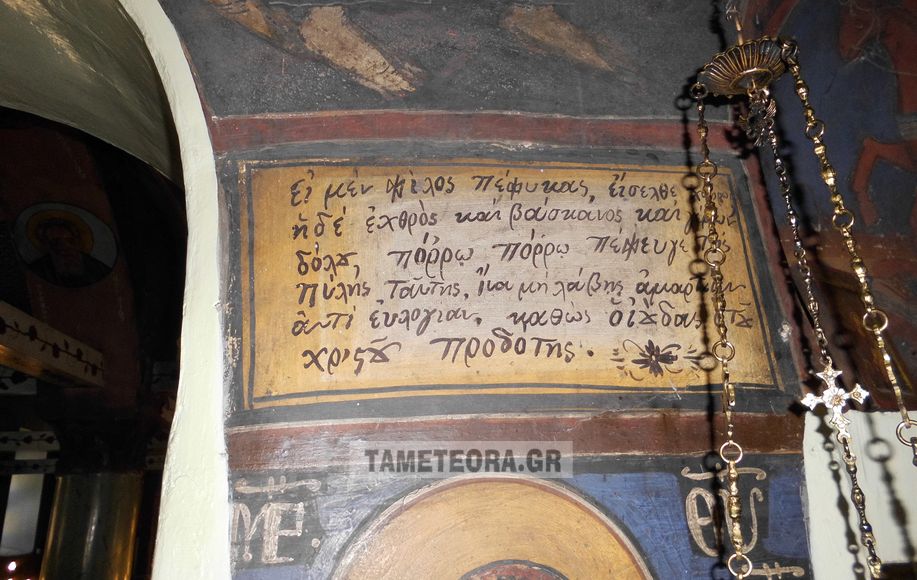 εἰ μὲν φίλος πέφυκας, εἴσελθε
ἢ δέ ἐχθρὸς καὶ βάσκανος καὶ
δόλȣ, πόῤῥω πόῤῥω πέφευγε
πύλης ταύτης, ἵνα μὴ λάβης ἁμαρτίαν
ἀντί εὐλογίαν, καθὼς ὁ ἰȣ́δας τȣ͂
χριϛȣ͂ προδότης.
TAMETEORA.GR
ΜΕ.